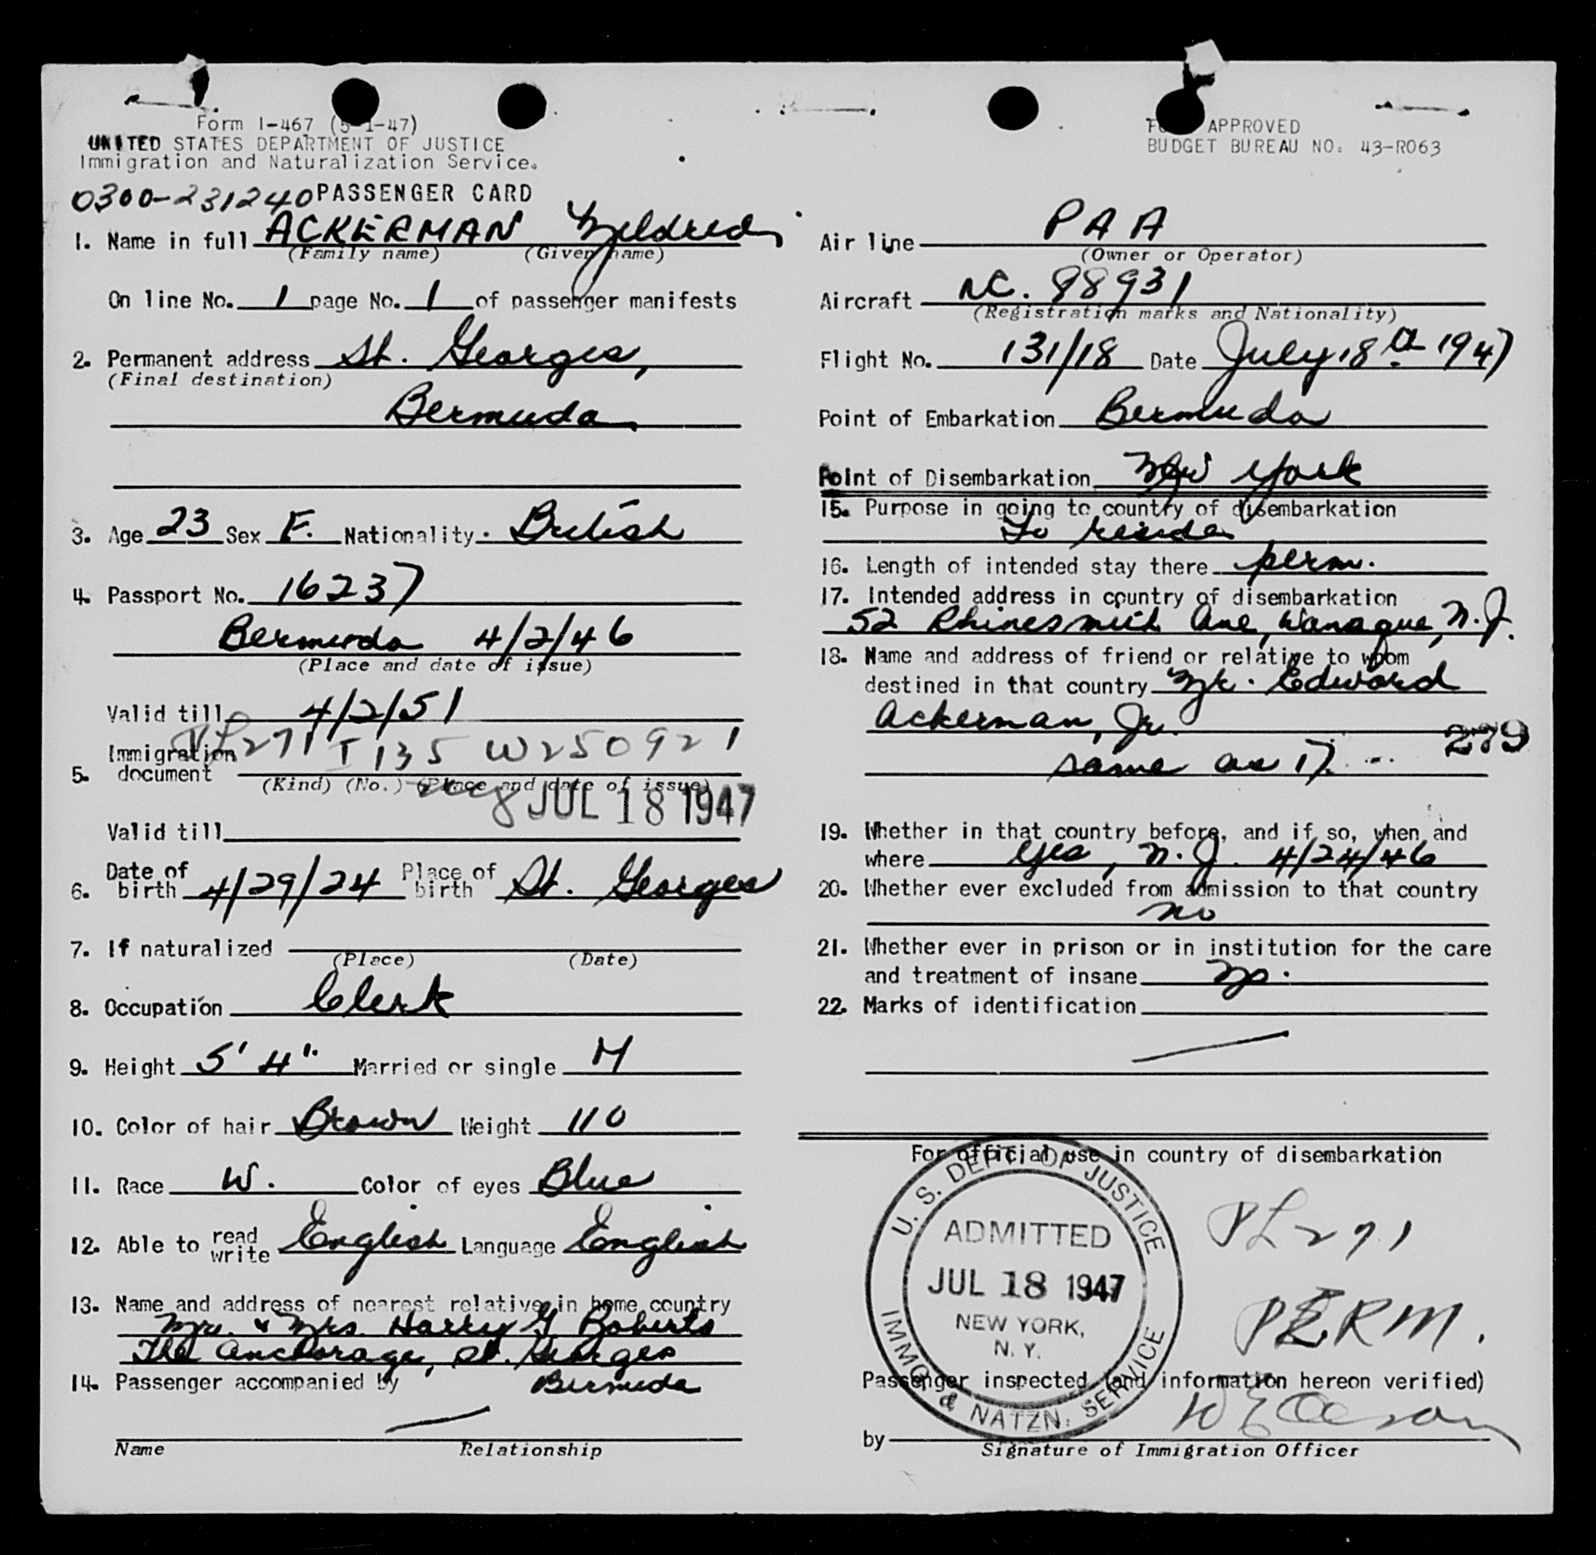 Form I-467 (5-1-47)
UNITED STATES DEPARTMENT OF JUSTICE
Immigration and Naturalization Service.
0300-231240 PASSENGER CARD
1. Name in full ACKERMAN Mildred
(Family name) (Given name)
On line No. 1 page No. 1 of passenger manifests
2. Permanent address St. Georges,
(Final destination)
Bermuda
3. Age 23 Sex F. Nationality British
4. Passport No. 16237
Bermuda 4/2/46
(Place and date of issue)
Valid till 4/2/51
PL271 I 135 W250921
5. Immigration document
(Kind) (No.) (Place and date of issue)
JUL 18 1947
Valid till
6. Date of birth 4/29/24 Place of birth St. Georges
7. If naturalized
(Place) (Date)
8. Occupation Clerk
9. Height 5' 4" Married or single M
10. Color of hair Brown Weight 110
11. Race W. Color of eyes Blue
12. Able to read write English Language English
13. Name and address of nearest relative in home country
Mr. & Mrs. Harry G Roberts
The Anchorage, St. Georges
14. Passenger accompanied by Bermuda
Name Relationship
FORM APPROVED
BUDGET BUREAU NO. 43-R063
Air line PAA
(Owner or Operator)
Aircraft NC. 88931
(Registration marks and Nationality)
Flight No. 131/18 Date July 18th 1947
Point of Embarkation Bermuda
Point of Disembarkation New York
15. Purpose in going to country of disembarkation
To reside
16. Length of intended stay there perm.
17. Intended address in country of disembarkation
52 Rhinesmith Ave, Wanaque, N.J.
18. Name and address of friend or relative to whom
destined in that country Mr. Edward
Ackerman, Jr.
279
same as 17.
19. Whether in that country before, and if so, when and
where Yes, N.J. 4/24/46
20. Whether ever excluded from admission to that country
no
21. Whether ever in prison or in institution for the care
and treatment of insane no.
22. Marks of identification
For official use in country of disembarkation
U. S. DEPT. OF JUSTICE
ADMITTED
JUL 18 1947
NEW YORK,
N. Y.
IMMG. & NATZN. SERVICE
PL271
PERM.
Passenger inspected (and information hereon verified)
by
Signature of Immigration Officer